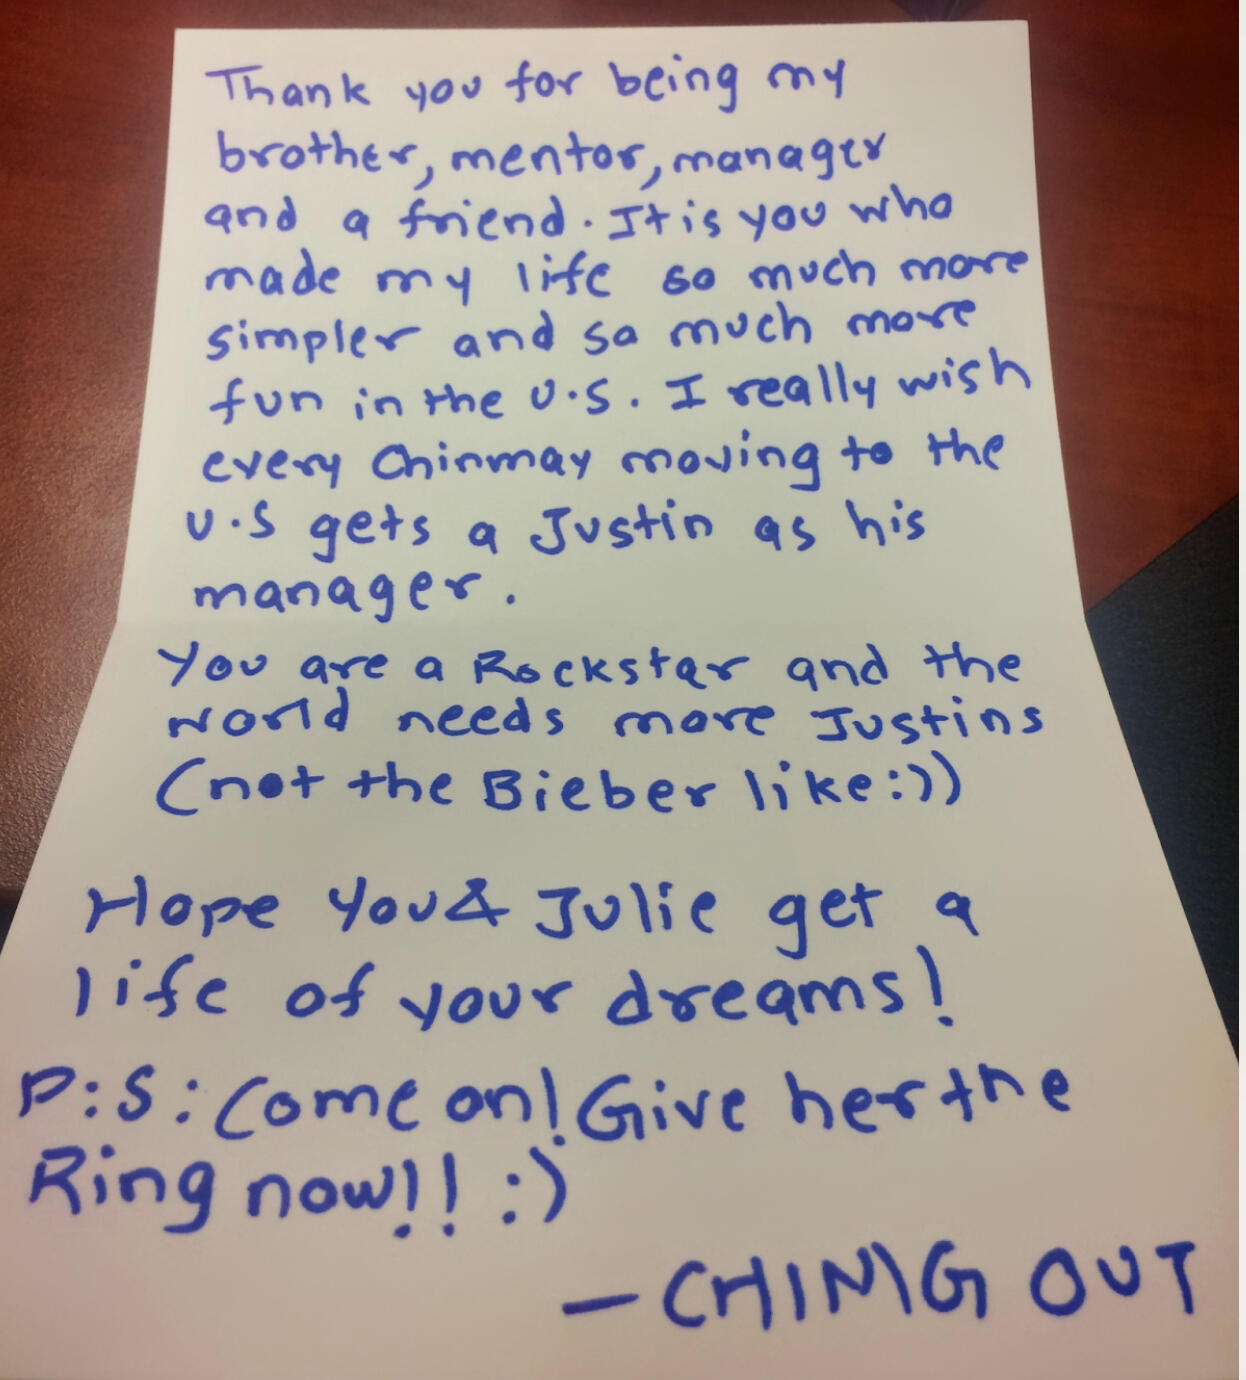 Thank you for being my
brother, mentor, manager
and a friend. It is you who
made my life so much more
simpler and so much more
fun in the U.S. I really wish
every Chinmay moving to the
U.S gets a Justin as his
manager.
You are a Rockstar and the
world needs more Justins
(not the Bieber like:))
Hope You & Julie get a
life of your dreams!
P:S: Come on! Give her the
Ring now!! :)
— CHIMG OUT